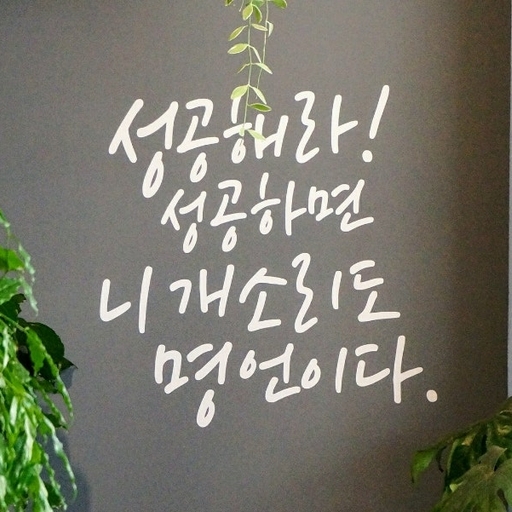 성공해라!
성공하면
니 개소리도
명언이다.